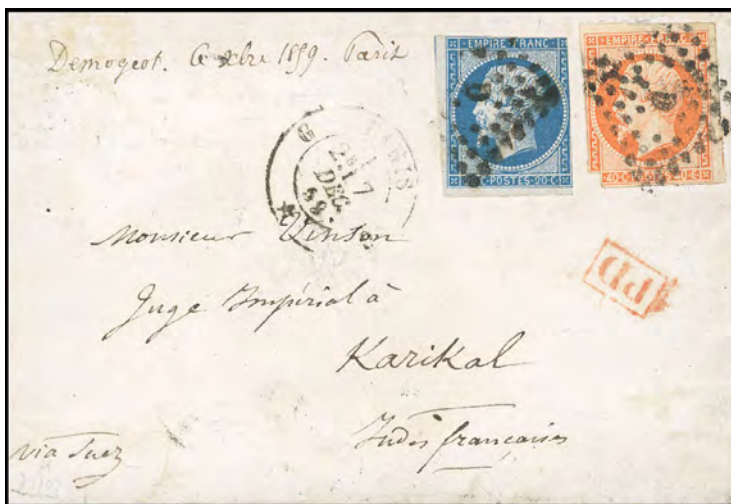 Demogeot. 6 xbre 1859. Paris
EMPIRE FRANC
POSTES 20 C
EMPIRE FRANC
40 C
PARIS
G
7
DEC.
59
PD
Monsieur Vinson
Juge Impérial à
Karikal
Indes françaises
via Suez